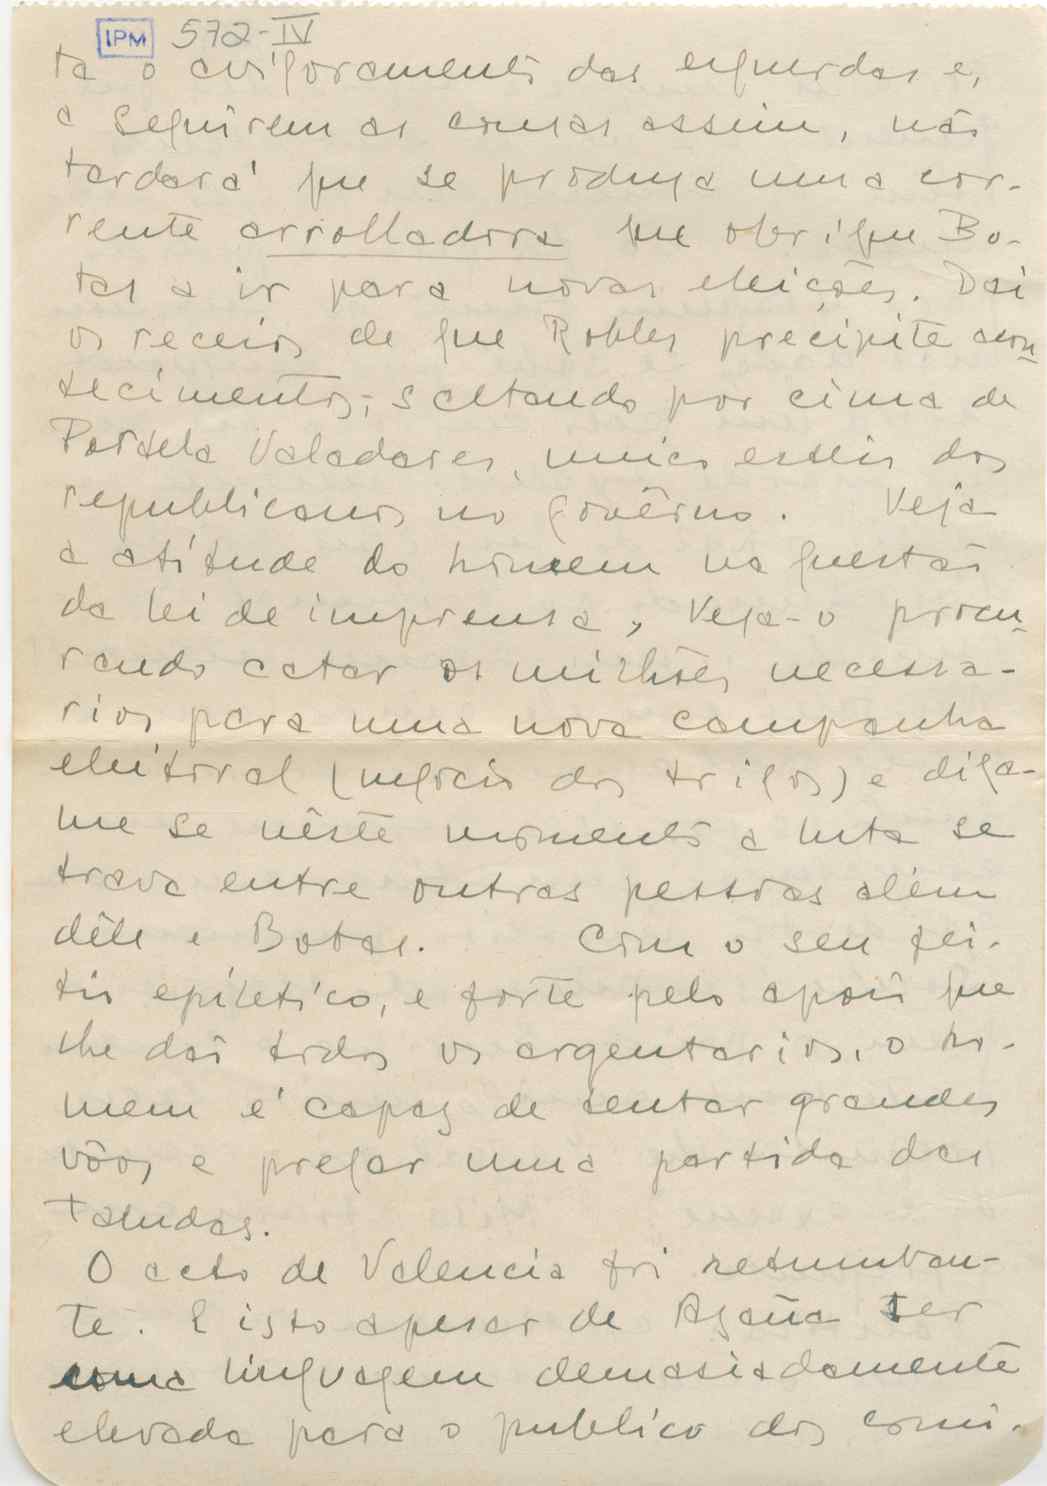 IPM 572-IV
ta o avigoramento das esquerdas e,
a seguirem as cousas assim, não
tardará que se produza uma cor-
rente arrolladora que obrigue Bo-
tas a ir para novas eleições. Dai
os receios de que Robles precipite acon
tecimentos, saltando por cima de
Portela Valadares, unico esteio dos
republicanos no govêrno. Veja
a atitude do homem na questão
da lei de imprensa, Veja-o procu
rando catar os milhões necessa-
rios para uma nova campanha
eleitoral (negocio dos trigos) e diga-
me se nêste momento a luta se
trava entre outras pessoas além
dêle e Botas. Com o seu fei-
tio epiletico, e forte pelo apoio que
lhe dão todos os argentarios, o ho-
mem é capaz de tentar grandes
vôos e pregar uma partida das
taludas.
O acto de Valencia foi retumban-
te. E isto apesar de Azaña ter
uma linguagem demasiadamente
elevada para o publico dos comi-